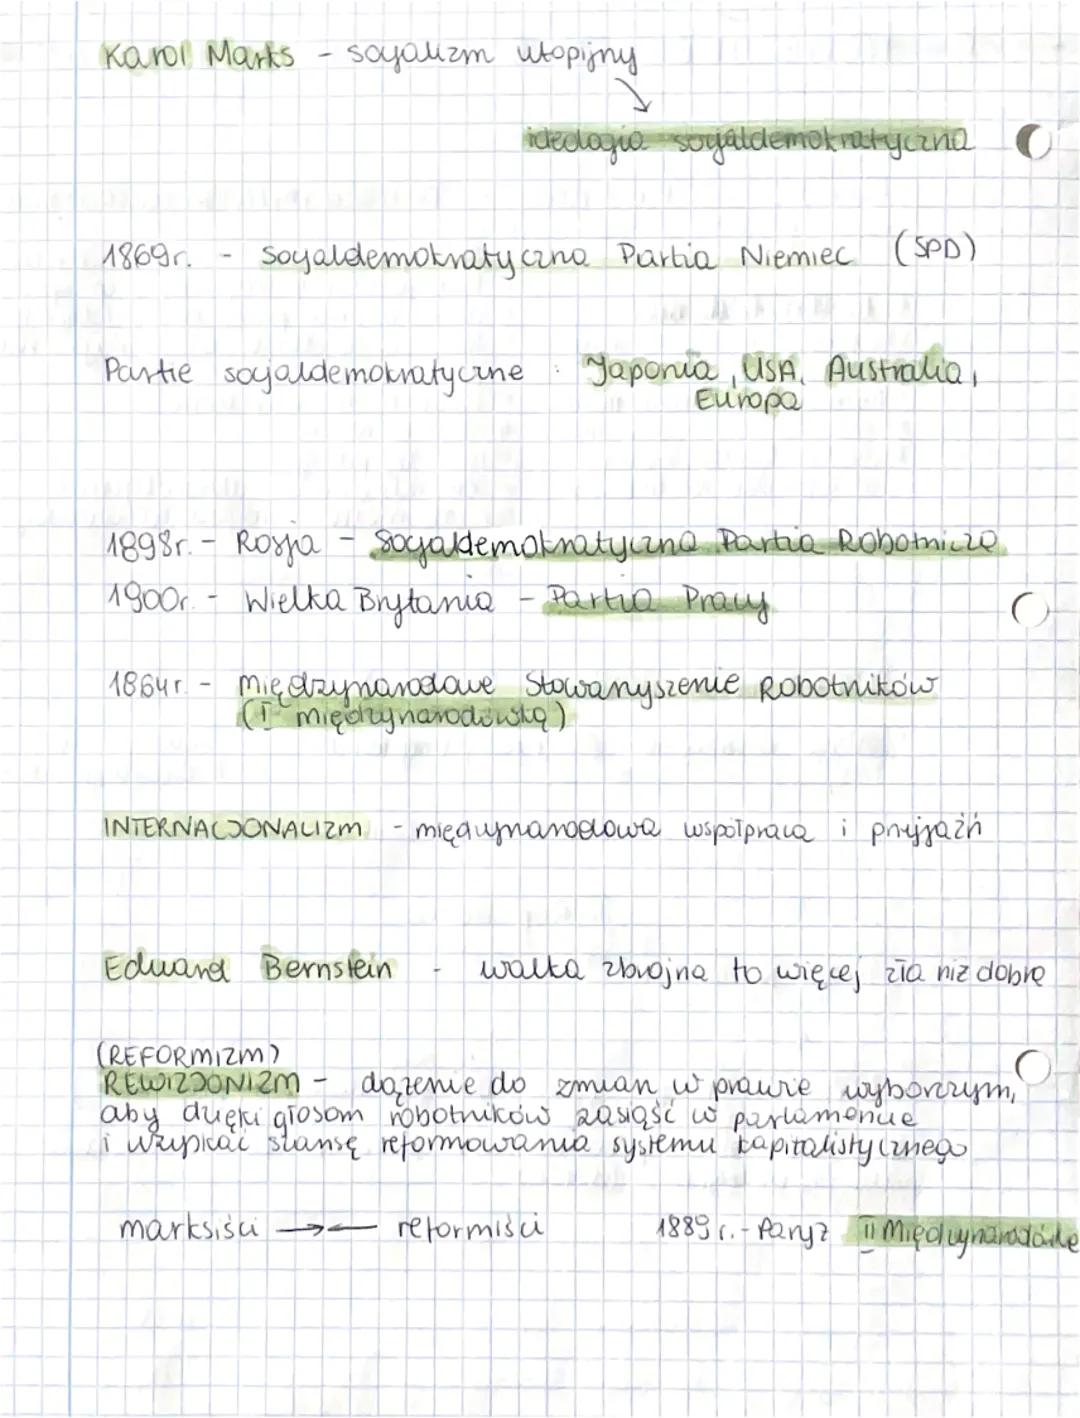 Karol Marks - socjalizm utopijny
ideologia socjaldemokratyczna
1869r. - Socjaldemokratyczna Partia Niemiec (SPD)
Partie socjaldemokratyczne : Japonia, USA, Australia,
Europa
1898r. - Rosja - Socjaldemokratyczna Partia Robotnicza
1900r. - Wielka Brytania - Partia Pracy
1864r. - Międzynarodowe Stowarzyszenie Robotników
(I międzynarodówka)
INTERNACJONALIZM - międzynarodowa współpraca i przyjaźń
Eduard Bernstein - walka zbrojna to więcej zła niż dobra
(REFORMIZM)
REWIZJONIZM - dążenie do zmian w prawie wyborczym,
aby dzięki głosom robotników zasiąść w parlamencie
i uzyskać szansę reformowania systemu kapitalistycznego
marksiści →← reformiści 1889r. - Paryż II Międzynarodówka